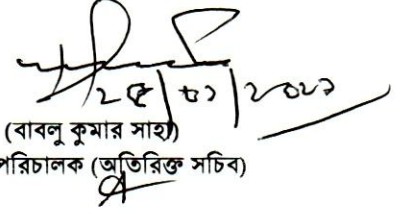 ২৫/০১/২০২১
(বাবলু কুমার সাহা)
পরিচালক (অতিরিক্ত সচিব)